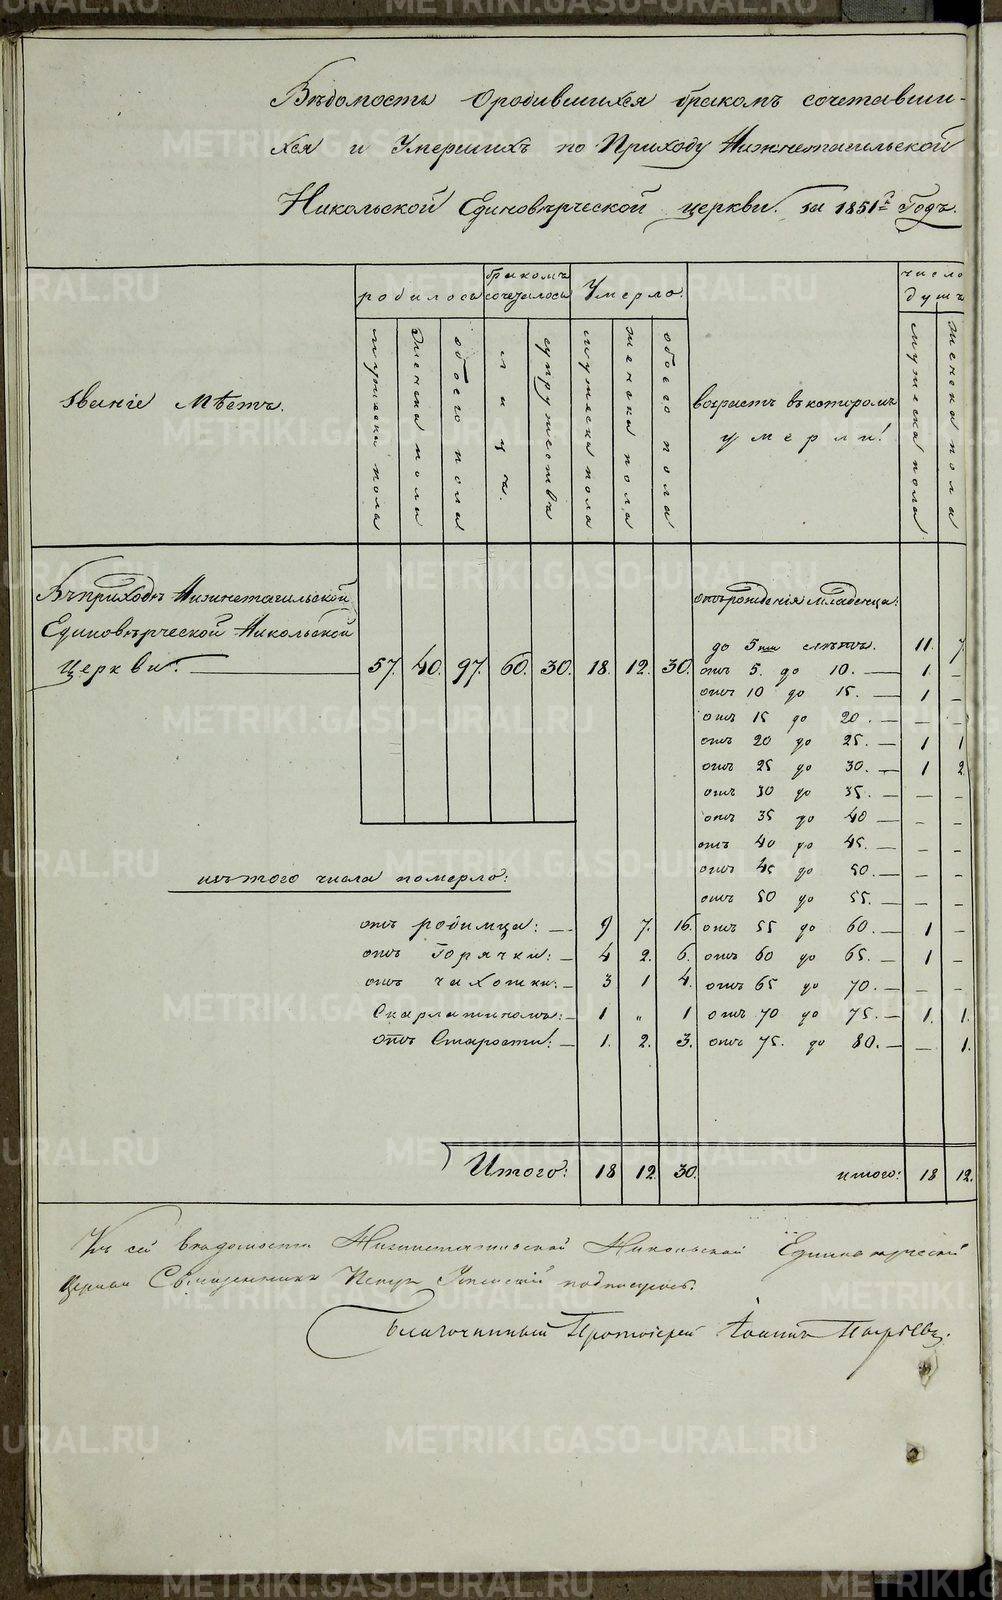 Вѣдомость о родившихся бракомъ сочетавши-
хся и Умершихъ по Приходу Нижнетагильской
Никольской Единовѣрческой церкви. за 1851й Годъ.
Званіе Мѣстъ.
родилось
бракомъ сочеталось
Умерло.
число душъ
мужеска пола
женска пола
обоего пола
лица.
супружествъ
мужеска пола
женска пола
обоего пола
возрастъ въ которомъ
умерли!
мужеска пола
женска пола
Въ приходѣ Нижнетагильской
Единовѣрческой Никольской
Церкви. 57. 40. 97. 60. 30. 18. 12. 30.
отъ рожденія младенца:
до 5ти лѣтъ. 11. 7.
отъ 5. до 10. — 1. –
отъ 10 до 15. — 1 –
отъ 15 до 20. — – –
отъ 20 до 25. — 1 1
отъ 25 до 30. — 1 2
отъ 30 до 35. — – –
отъ 35 до 40 — – –
отъ 40 до 45. — – –
отъ 45 до 50. — – –
отъ 50 до 55. — – –
отъ 55 до 60. — 1 –
отъ 60 до 65. — 1 –
отъ 65 до 70. — – –
отъ 70 до 75. — 1. 1.
отъ 75. до 80. — – 1.
изъ того числа померло:
отъ родимца: — 9 7. 16.
отъ Горячки: — 4 2. 6.
отъ чахотки: — 3 1 4.
Скарлатиномъ: — 1 " 1
отъ Старости: — 1. 2. 3.
Итого: 18 12. 30.
итого: 18 12.
Къ сей вѣдомости Нижнетагильской Никольской Единовѣрческой
Церкви Священникъ подписуюсь.
Благочинный Протоіерей Іоаннъ
METRIKI.GASO-URAL.RU